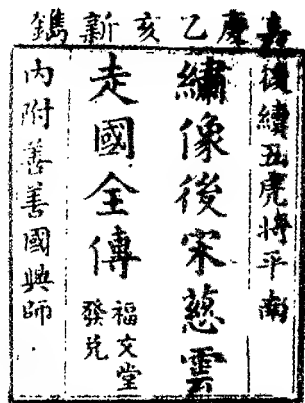 嘉慶乙亥新鐫
後續五虎將平南
繡像後宋慈雲
走國全傳
福文堂
發兌
內附善善國興師